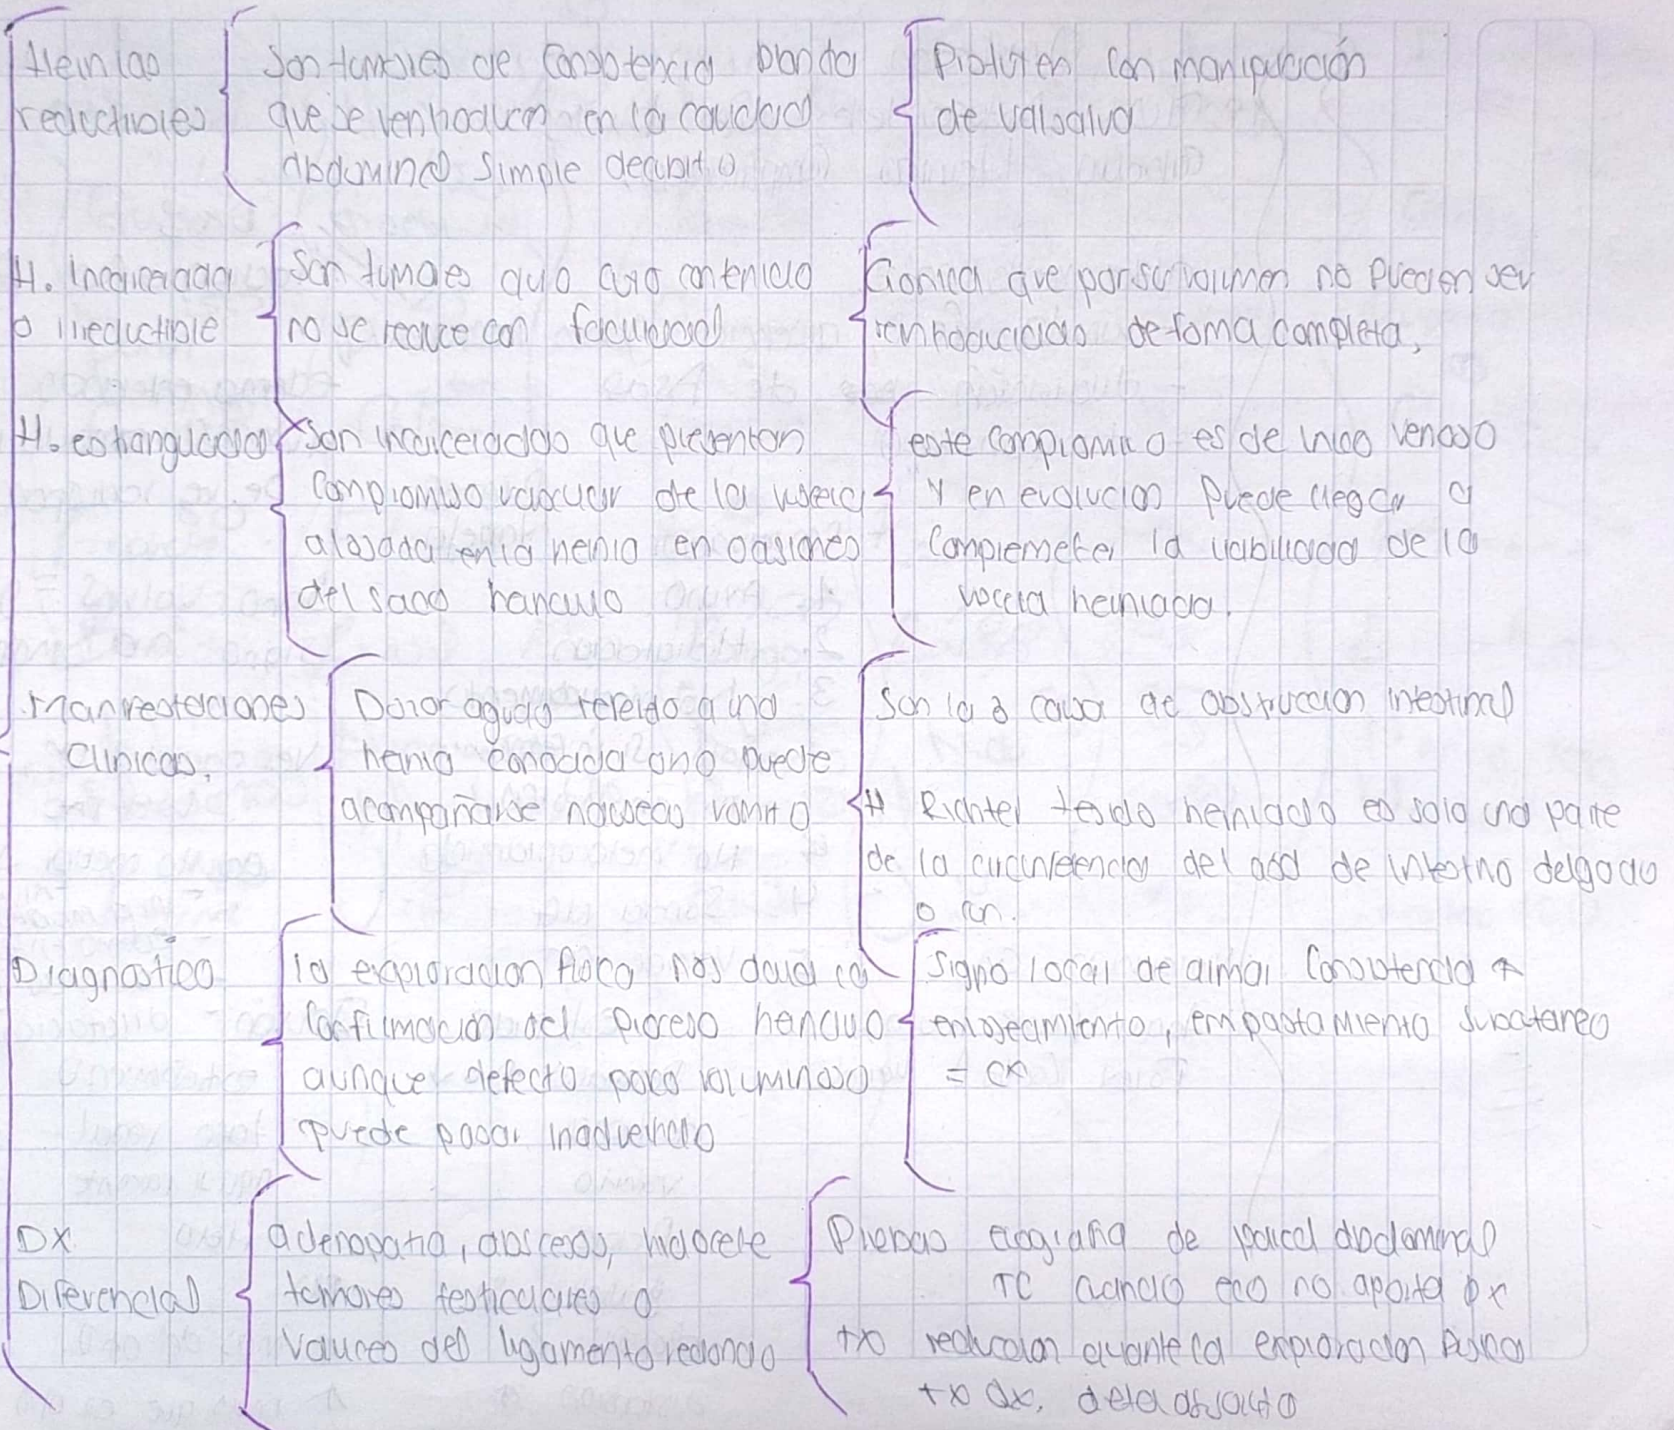 Hernias
reductibles
Son tumores de consistencia blanda
que se reintroducen en la cavidad
abdominal simple decubito
Protuyen con manipulación
de valsalva
H. Incarcerada
o irreductible
Son tumores cuyo contenido
no se reduce con facilidad
Cronica que por su volumen no pueden ser
reintroducidas de foma completa,
H. estrangulada
Son incarceradas que presentan
compromiso vascular de la viscera
alojada en la hernia en oasiones
del saco herniario
este compromiso es de inicio venoso
y en evolucion puede llegar a
compremeter la viabilidad de la
viscera herniada.
Manifestaciones
Clinicas.
Dolor agudo referido a una
hernia conocida o no puede
acompañarse nauseas vomito
Son la 2 causa de obstruccion intestinal
H Richter tejido herniado es solo una parte
de la circunferencia del asa de intestino delgado
o
Diagnostico
la exploracion fisica nos dara la
confirmacion del proceso herniario
aunque defecto poco voluminoso
puede pasar inadvertido
Signo local de alarma consistencia ↑
enrojecimiento, empastamiento subcutaneo
= CX
DX
Diferencial
adenopatia, abscesos, hidrocele
tumores testiculares o
varices del ligamento redondo
Pruebas ecografia de pared abdominal
TC cuando eco no aporta Dx
tx reduccion durante la exploracion fisica
tx qx.